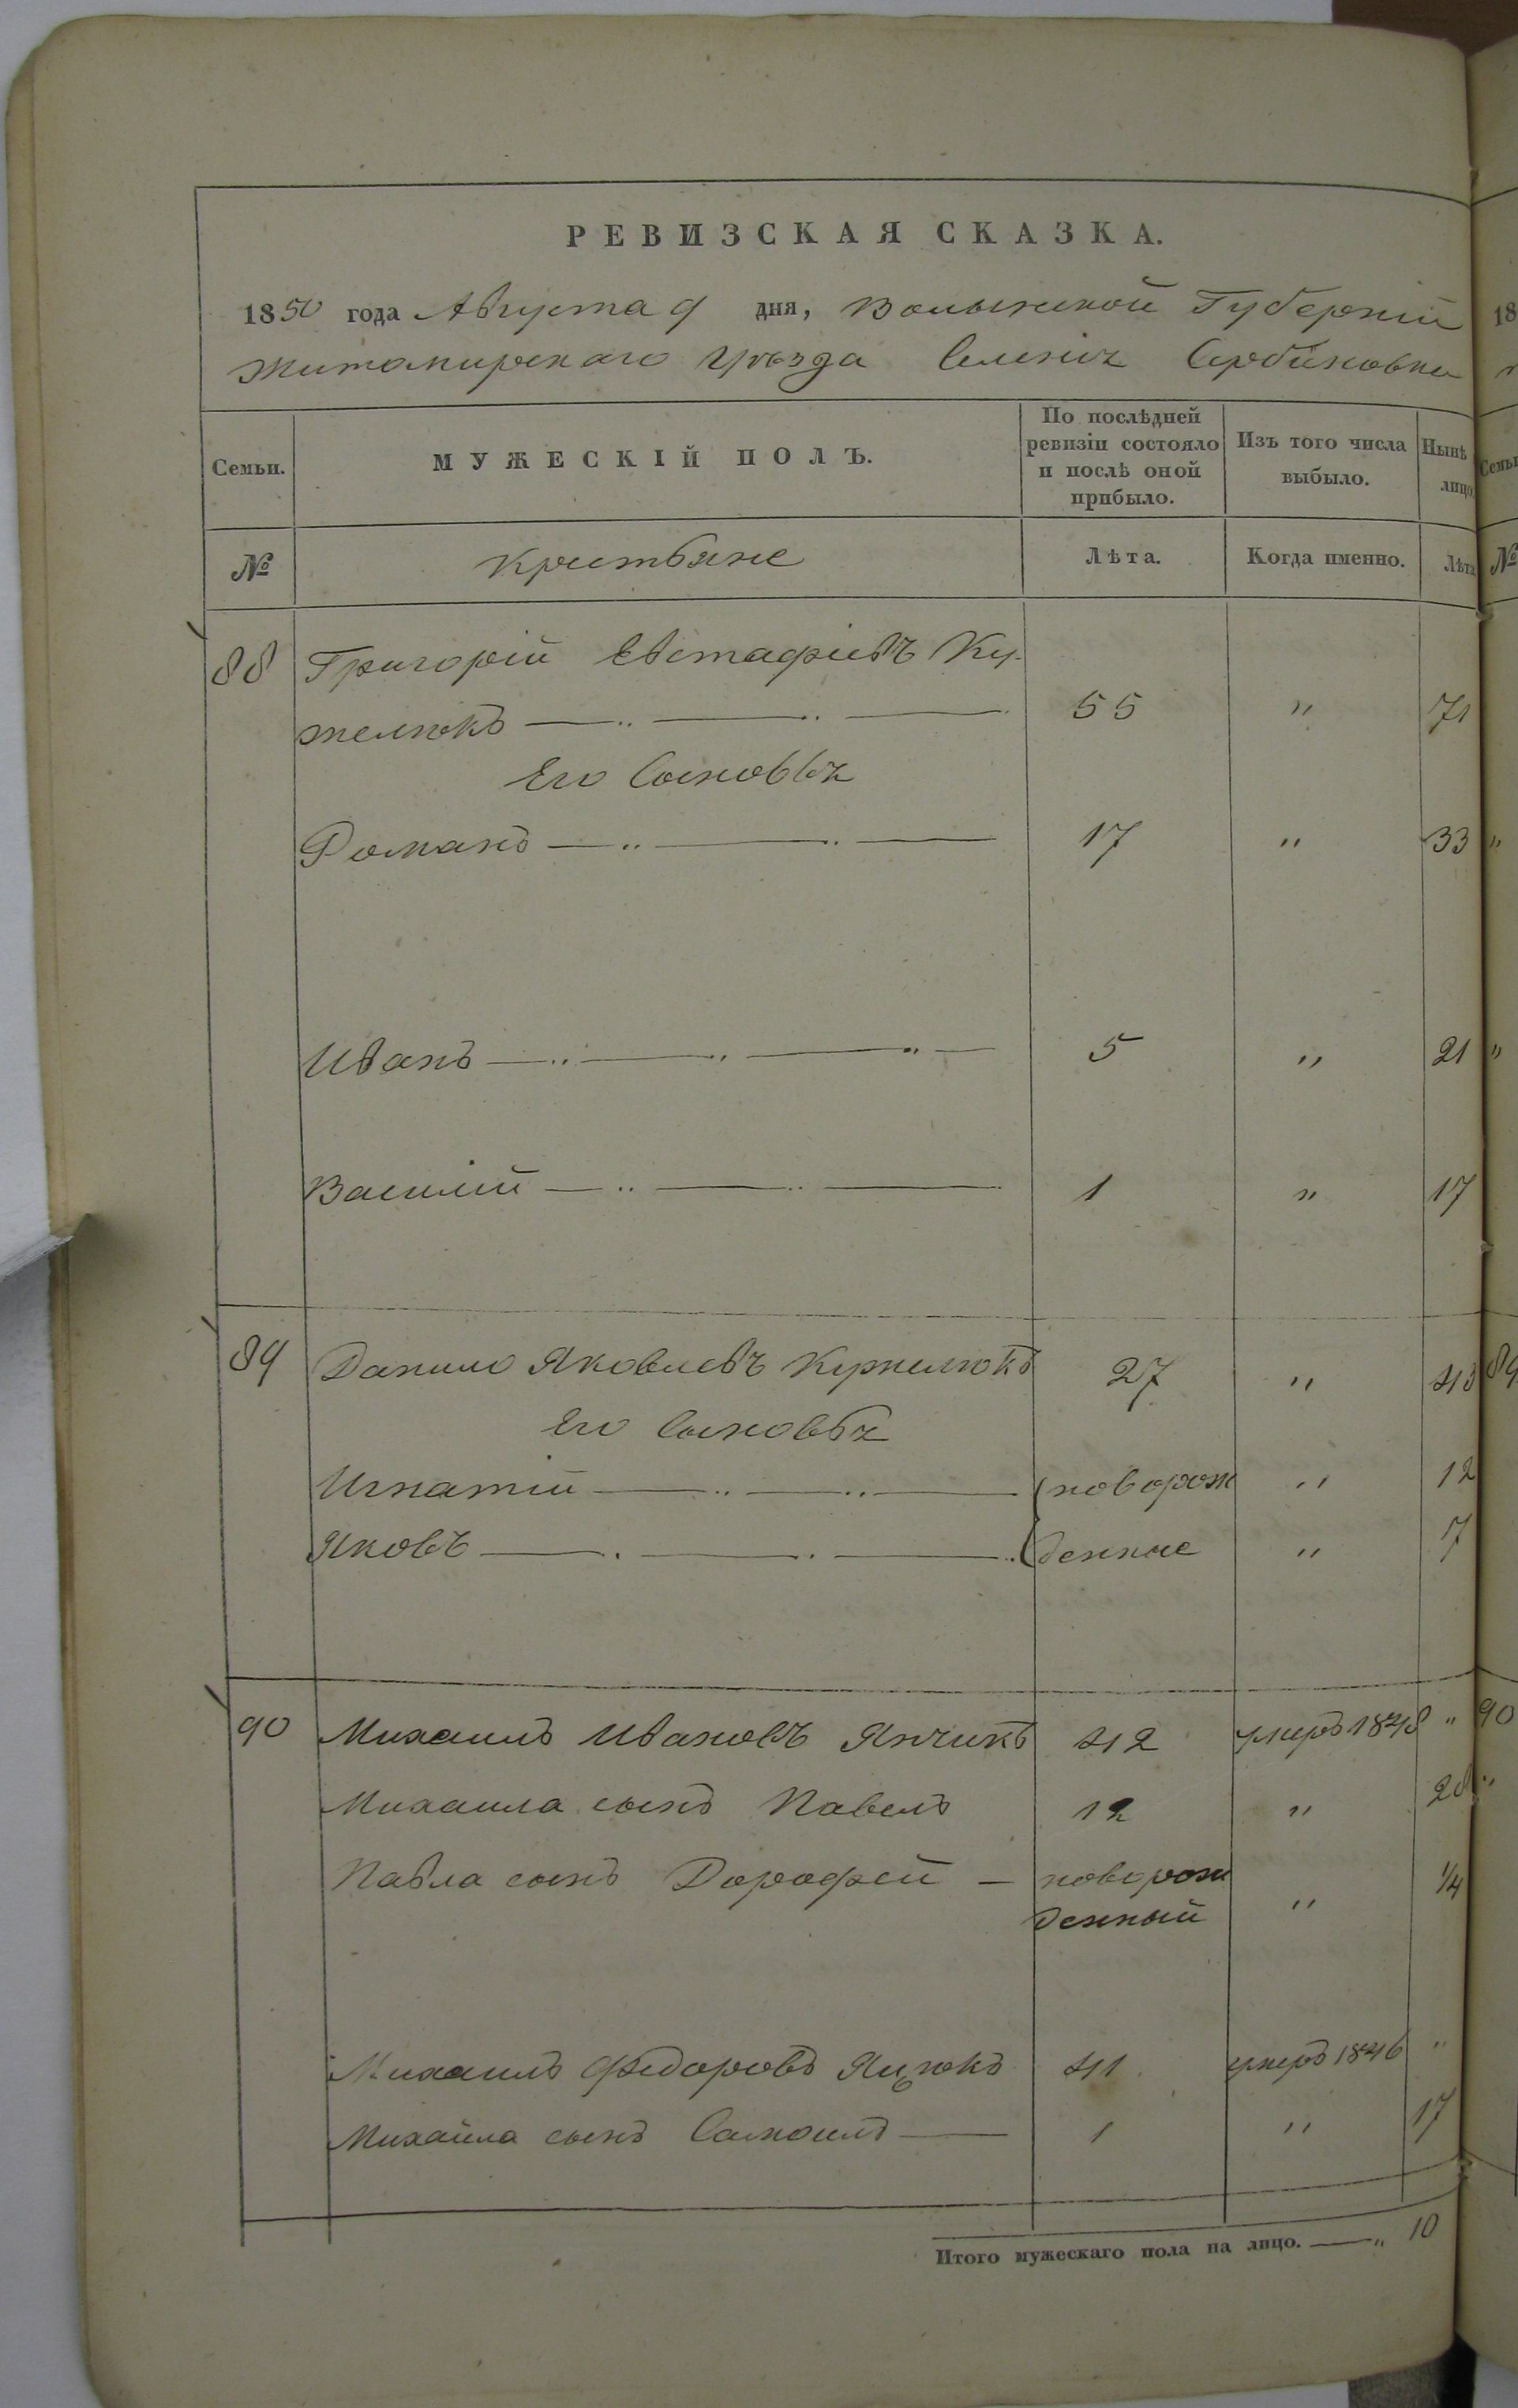 РЕВИЗСКАЯ СКАЗКА.
1850 года Августа 9 дня, Волынской Губерніи
Житомирскаго Уѣзда Селенія Сербиновки
Семьи. МУЖЕСКІЙ ПОЛЪ. По послѣдней ревизіи состояло и послѣ оной прибыло. Изъ того числа выбыло. Нынѣ лицо
№ Крестьяне Лѣта. Когда именно. Лѣта
88 Григорій Евстафіевъ Ку-
желюкъ 55 " 71
Его Сыновья
Романъ 17 " 33
Иванъ 5 " 21
Василій 1 " 17
89 Данило Яковлевъ Кужелюкъ 27 " 43
Его Сыновья
Игнатій новорож " 12
Яковъ денные " 7
90 Михаилъ Ивановъ Янчикъ 42 умеръ 1848 "
Михаила сынъ Павелъ 12 " 28
Павла сынъ Дорофей — новорож
денный " 1/4
Михаилъ Федоровъ 41 умеръ 1846 "
Михайла сынъ Самоилъ 1 " 17
Итого мужескаго пола на лицо. — " 10
18
Семьи
№
"
"
89
90
"